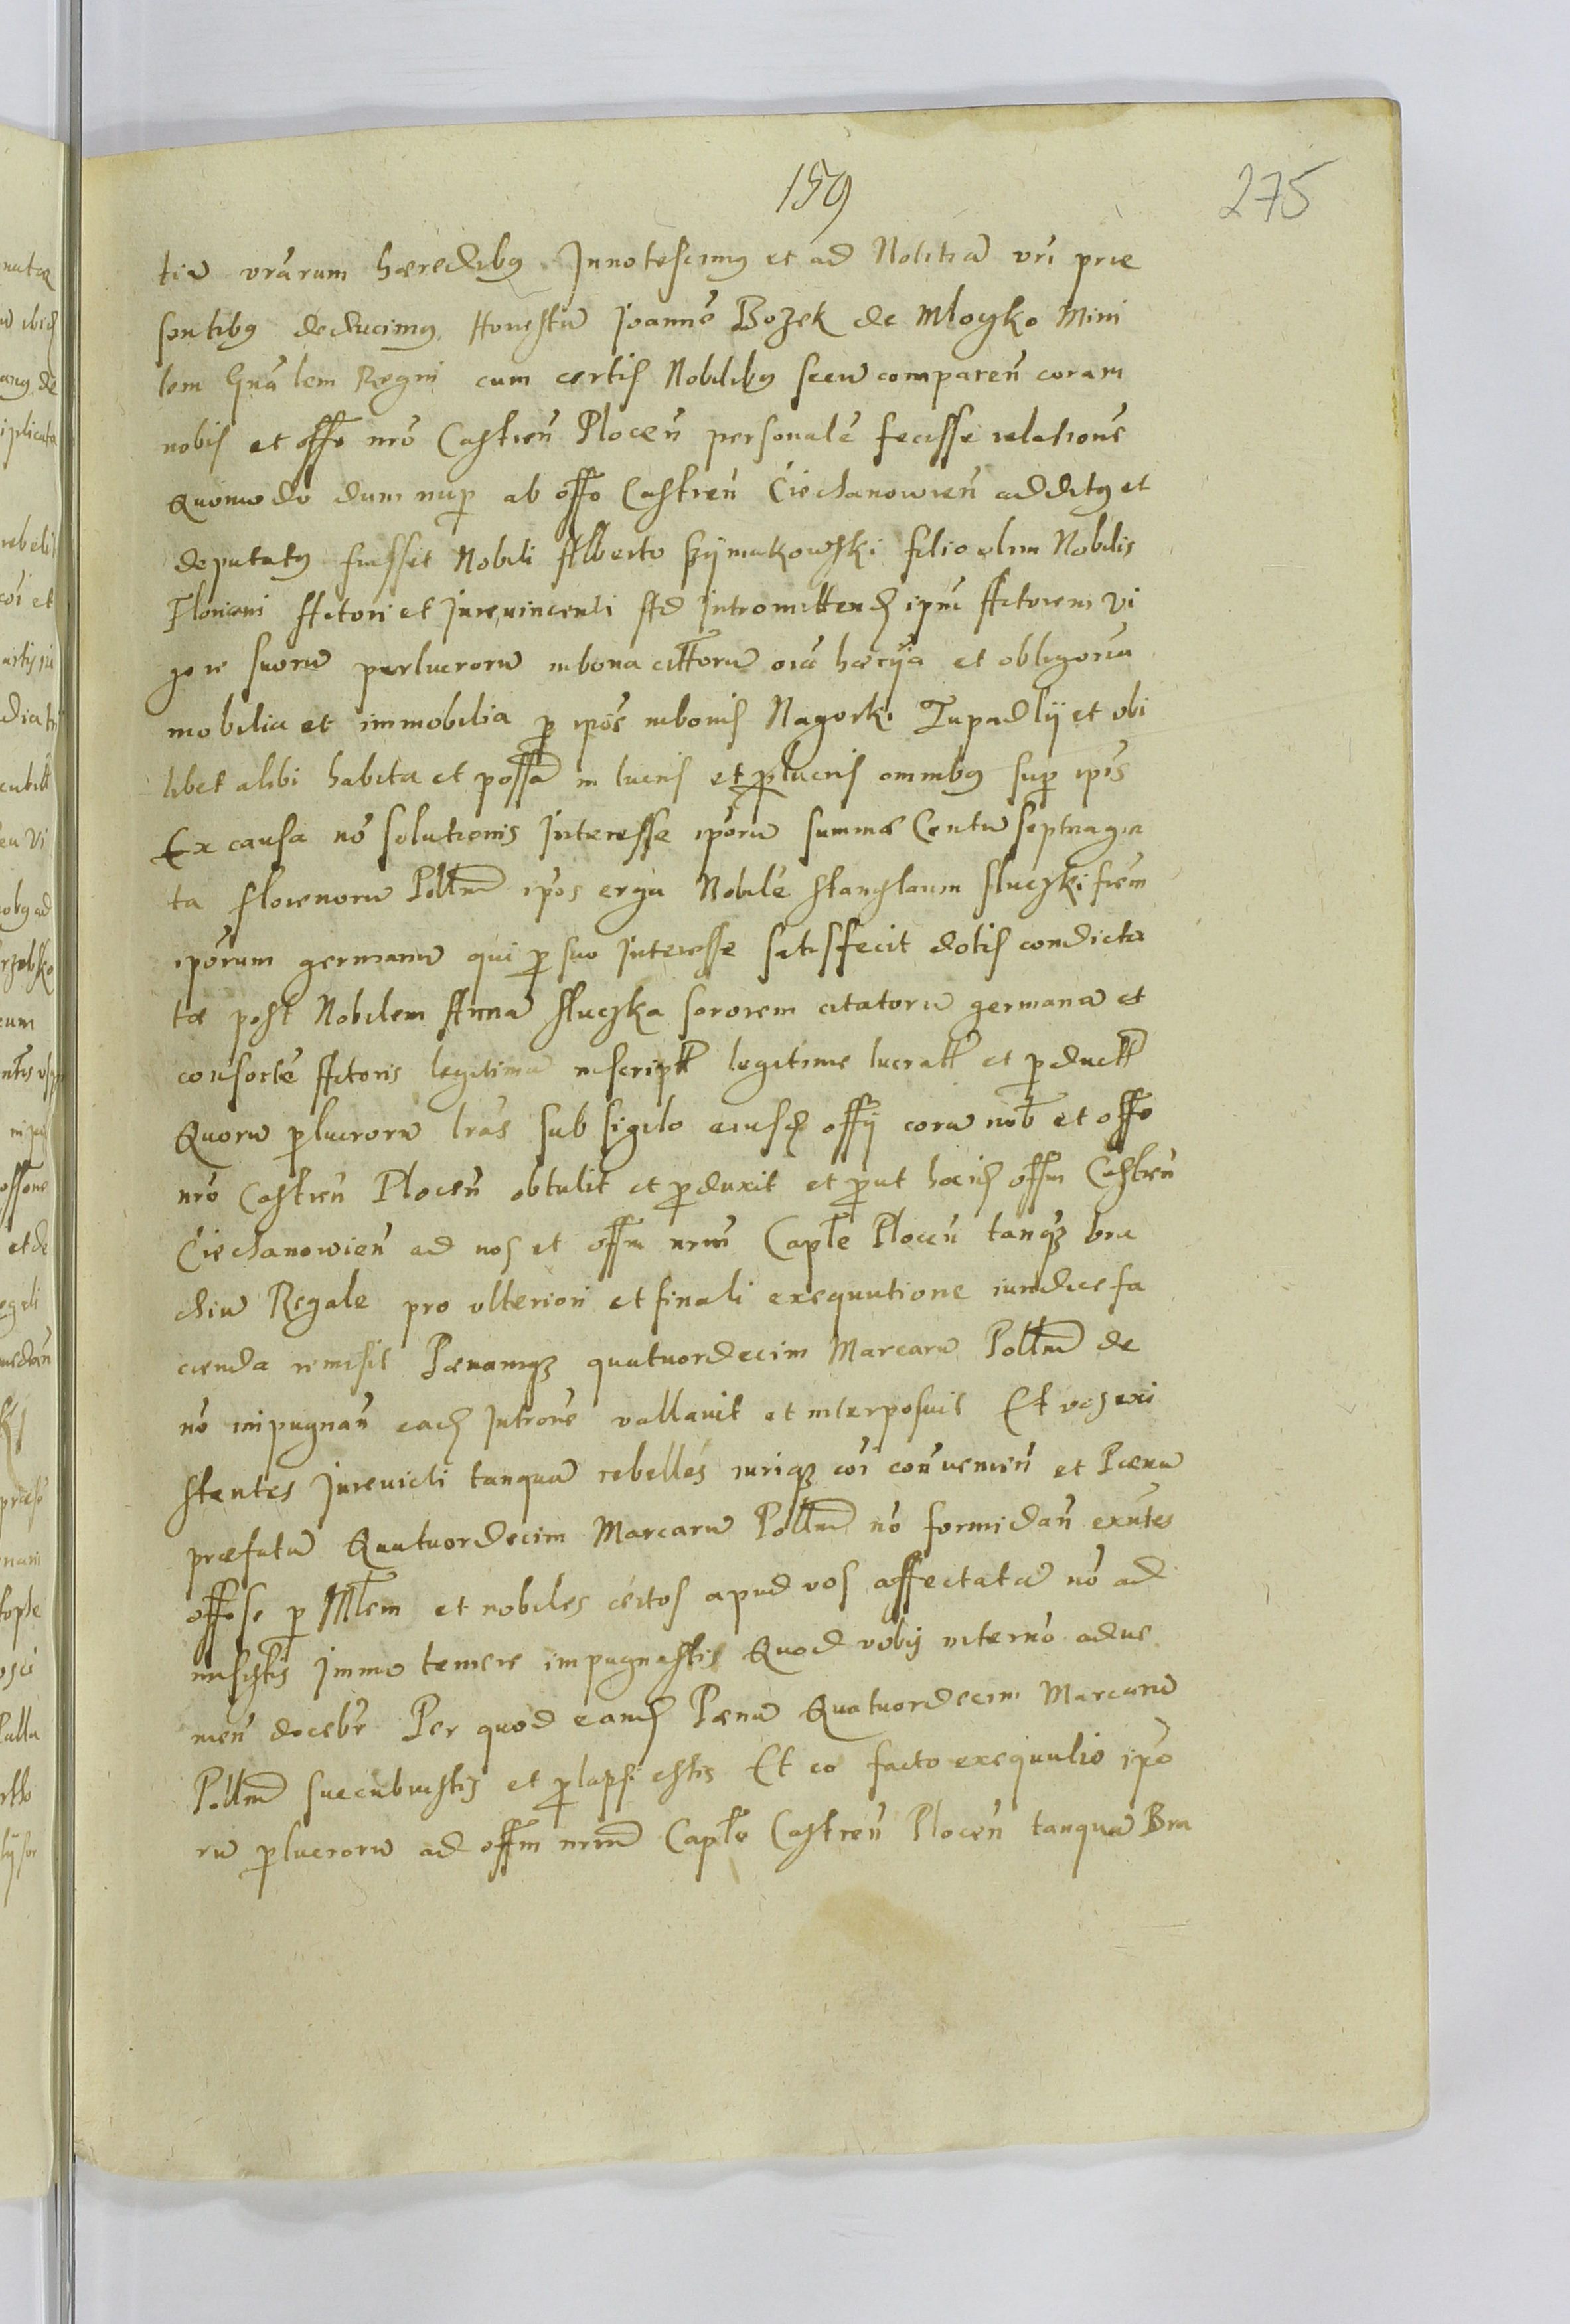 159
275
tiū vrārum hæredibꝯ Innotescimꝯ et ad Notitiā vrī præ
sentibꝯ deducimꝯ Honestū Joannē Bozek de Mloczko Mini
lem Gnālem Regni cum certis Nobilibꝯ secū comparen̄ coram
nobis et offo nrō Castren̄ Plocen̄ personalē fecisse relationē
Quomodo dum nup ab offo Castren̄ Ciechanowien̄ additꝯ et
deputatꝯ fuisset Nobili Alberto Szÿmakowski filio olim Nobilis
Floriani Actori et Jurevincenti Ad Intromittend ipm̄ Actorem vi
gore suorū perlucrorū in bona cittorū oīa hærÿa et obligoria
mobilia et immobilia p ipōs in bonis Nagorki Tupadlÿ et vbi
libet alibi habita et possā in lucris et plucris omnibꝯ sup ipīs
Ex causa nō solutionis Interesse ipōrū summæ Centū septuagin
ta florenorū Pollm̄ ipōs erga Nobilē Stanslaum Sluczki frem̄
ipōrum germanū qui p suo Interesse satisfecit dotis condicta
tæ post Nobilem Annā Sluczka sororem citatorū germanā et
consortē Actoris legitimā inscriptt legitime lucratt et pductt
Quorū plucrorū lrās sub sigilo eiusd offÿ corā nob et offo
nrō Castren̄ Plocen̄ obtulit et pduxit et put hoc id offm Castren̄
Ciechanowien̄ ad nos et offm nrm̄ Caple Plocen̄ tanqꝫ bra
chiū Regale pro vlteriori et finali exequutione iuridice fa
cienda remisit Pænamqꝫ quatuordecim Marcarū Pollm̄ de
nō impugnan̄ ead Introne vallavit et interposuit Et vos exi
stentes Jurevicti tanquā rebelles iuriqꝫ cōi conuenien̄ et Pænā
præfatā Quatuordecim Marcarū Pollm̄ nō formidan̄ exūtes
offose p Mlem et nobiles certos apud vos affectatā nō ad
misistis Immo temere impugnastis Quod vobis in termō adue
nien̄ docebr Per quod eand Pænā Quatuordecim Marcarū
Pollm̄ succubuistis et plapsi estis Et eo facto exequutio ipō
rū plucrorū ad offm nrm̄ Caple Castren̄ Plocen̄ tanquā Bra